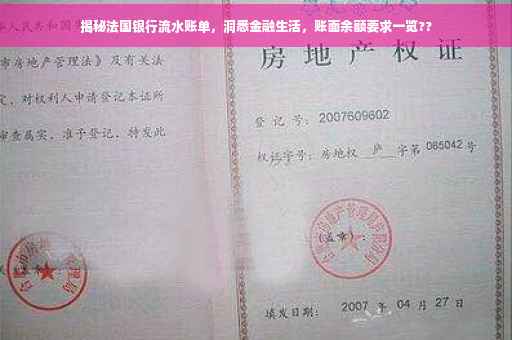 揭秘法国银行流水账单，洞悉金融生活，账面余额要求一览??
人民共和国
市房地产管理法》及有关法
定，对权利人申请登记本证所
审查属实，准予登记，特发此
房地产权证
登记号：2007609602
权证字号：房地权 庐 字第 085042 号
(盖章)：
填发日期：2007 年 04 月 27 日